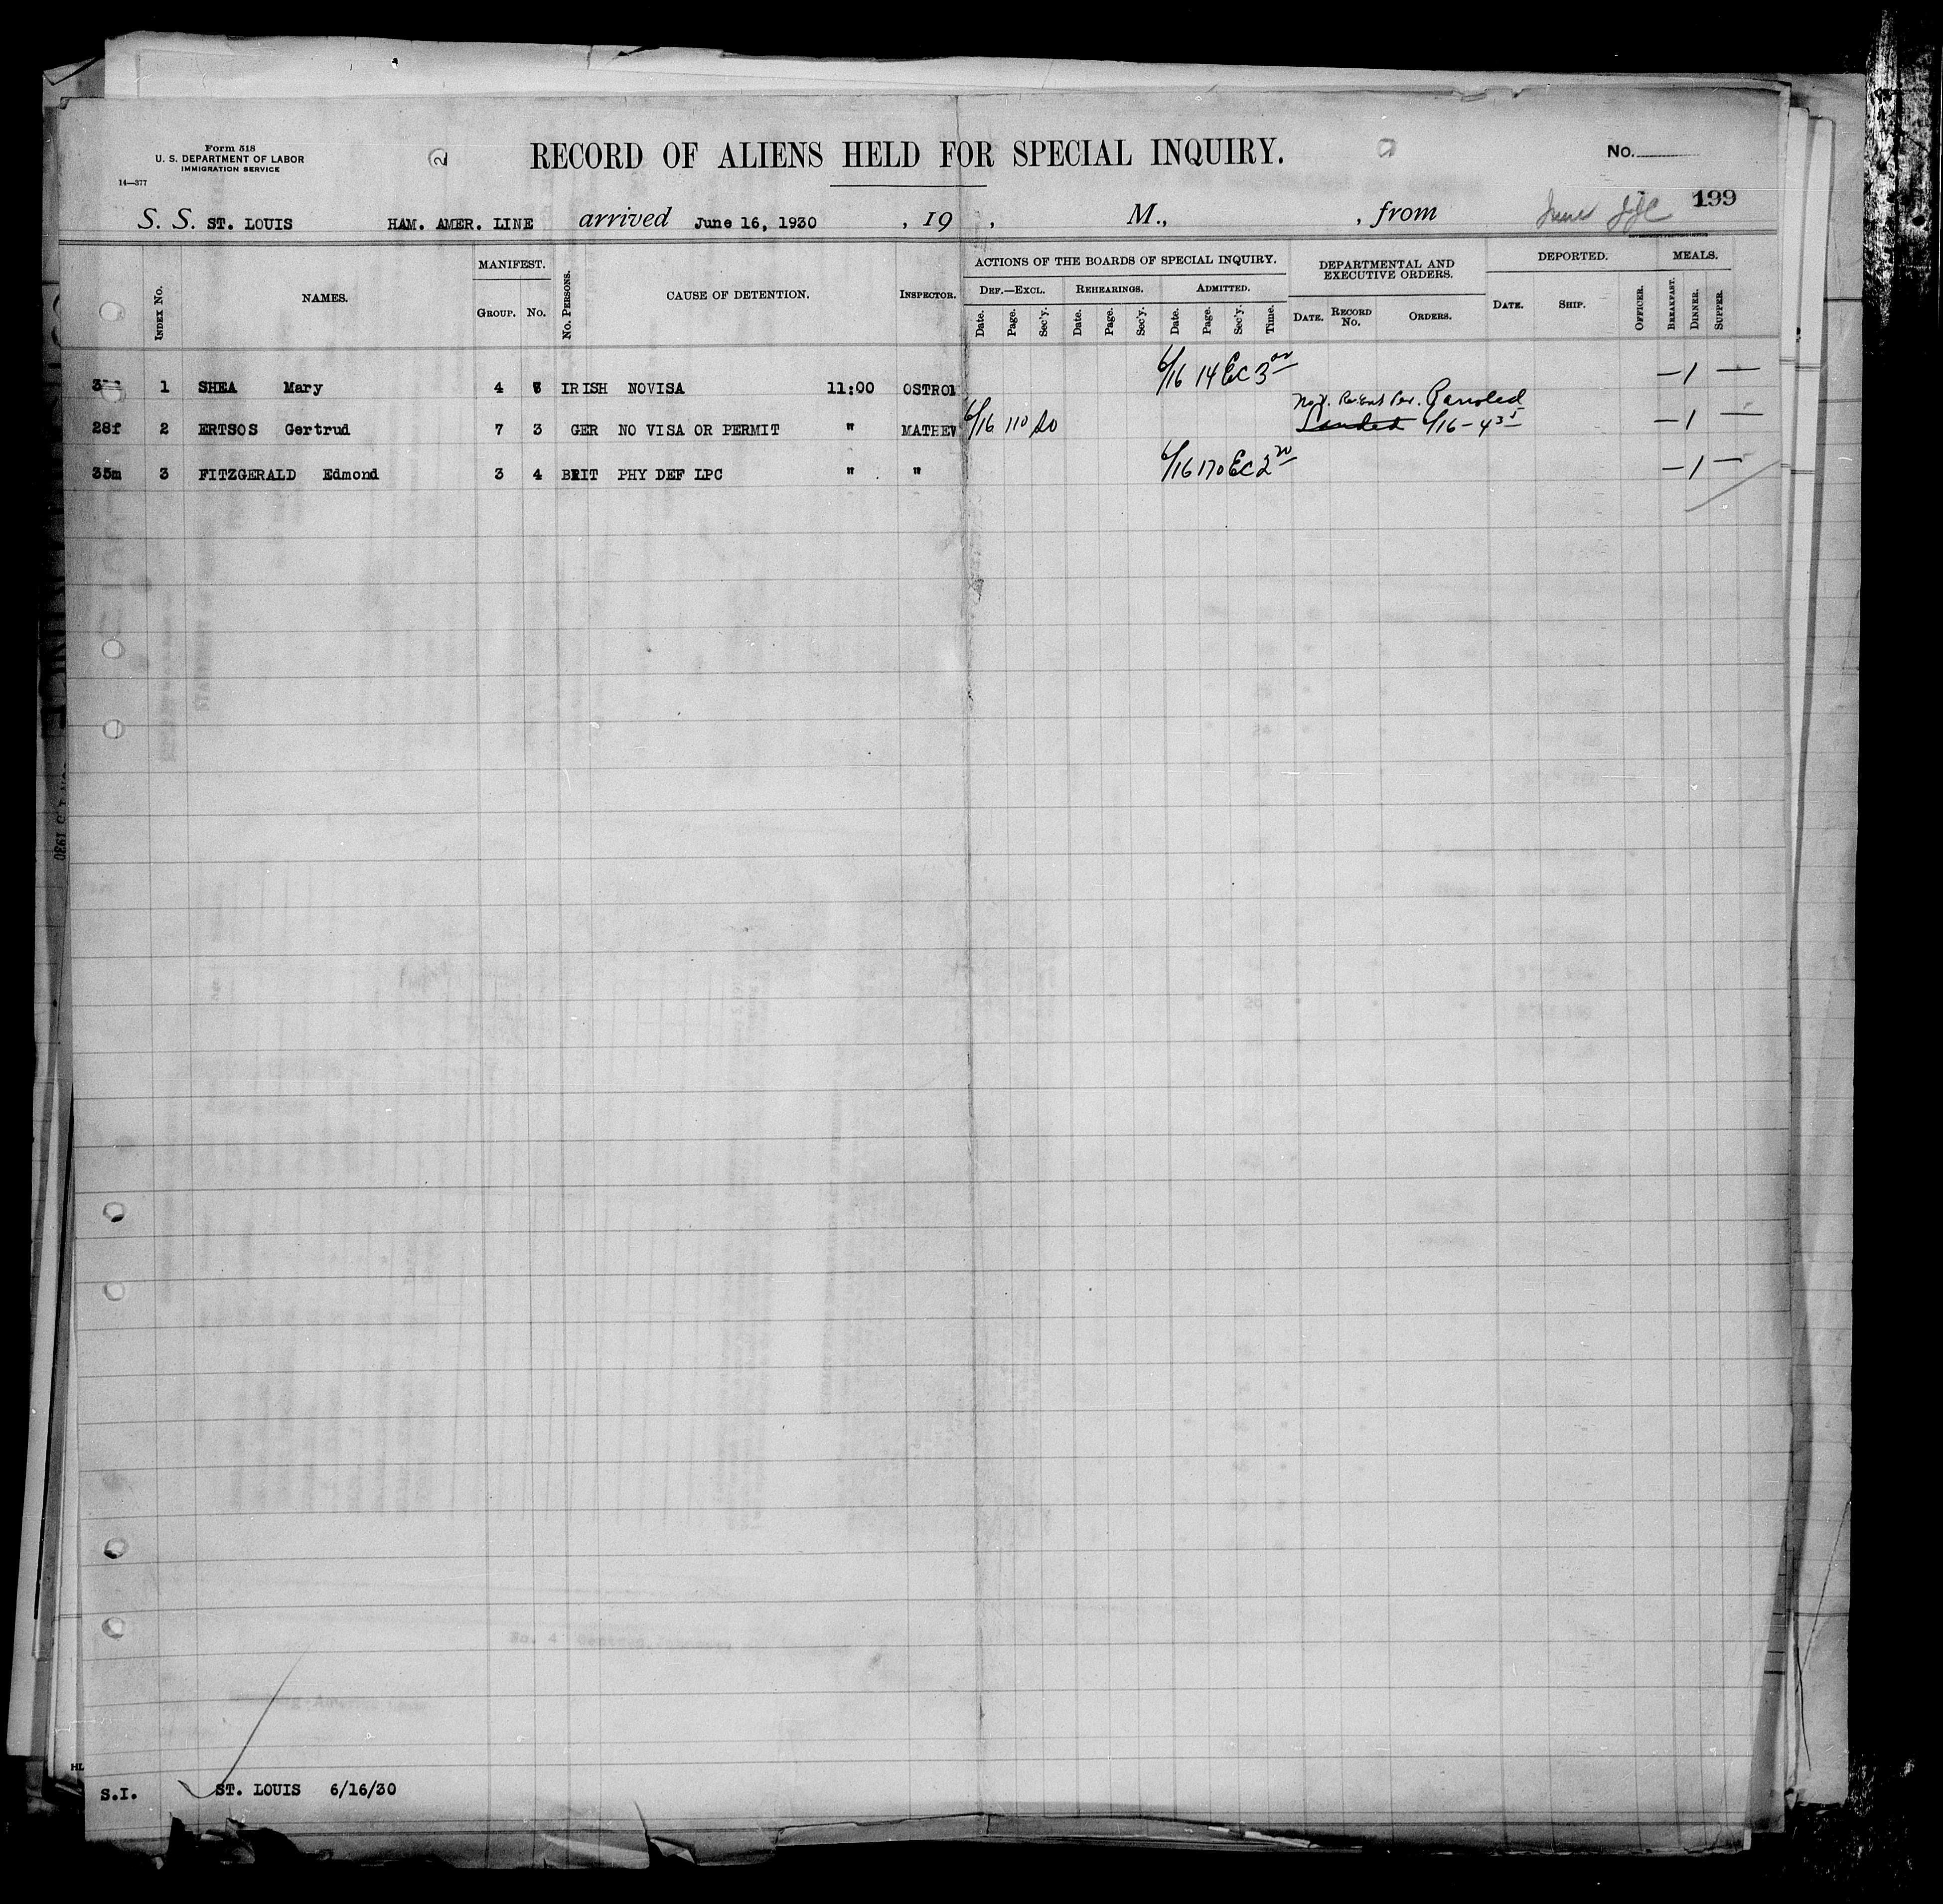 Form 518
U. S. DEPARTMENT OF LABOR
IMMIGRATION SERVICE
14—377
2
RECORD OF ALIENS HELD FOR SPECIAL INQUIRY.
No.
199
S. S. ST. LOUIS HAM. AMER. LINE arrived June 16, 1930 , 19 , M., , from
INDEX No. NAMES. MANIFEST. GROUP. No. No. PERSONS. CAUSE OF DETENTION. INSPECTOR. ACTIONS OF THE BOARDS OF SPECIAL INQUIRY. DEPARTMENTAL AND EXECUTIVE ORDERS. DEPORTED. MEALS.
DEF.—EXCL. REHEARINGS. ADMITTED.
Date. Page. Sec'y. Date. Page. Sec'y. Date. Page. Sec'y. Time. DATE. RECORD No. ORDERS. DATE. SHIP. OFFICER. BREAKFAST. DINNER. SUPPER.
1 SHEA Mary 4 IRISH NOVISA 11:00 6/16 14 EC 3 00 — 1 —
28f 2 ERTSOS Gertrud 7 3 GER NO VISA OR PERMIT " MATHEW 6/16 110 Paroled Landed 6/16 – 4 35 — 1 —
35m 3 FITZGERALD Edmond 3 4 BRIT PHY DEF LPC " " 6/16 170 EC 2 20 — 1 —
S.I. ST. LOUIS 6/16/30